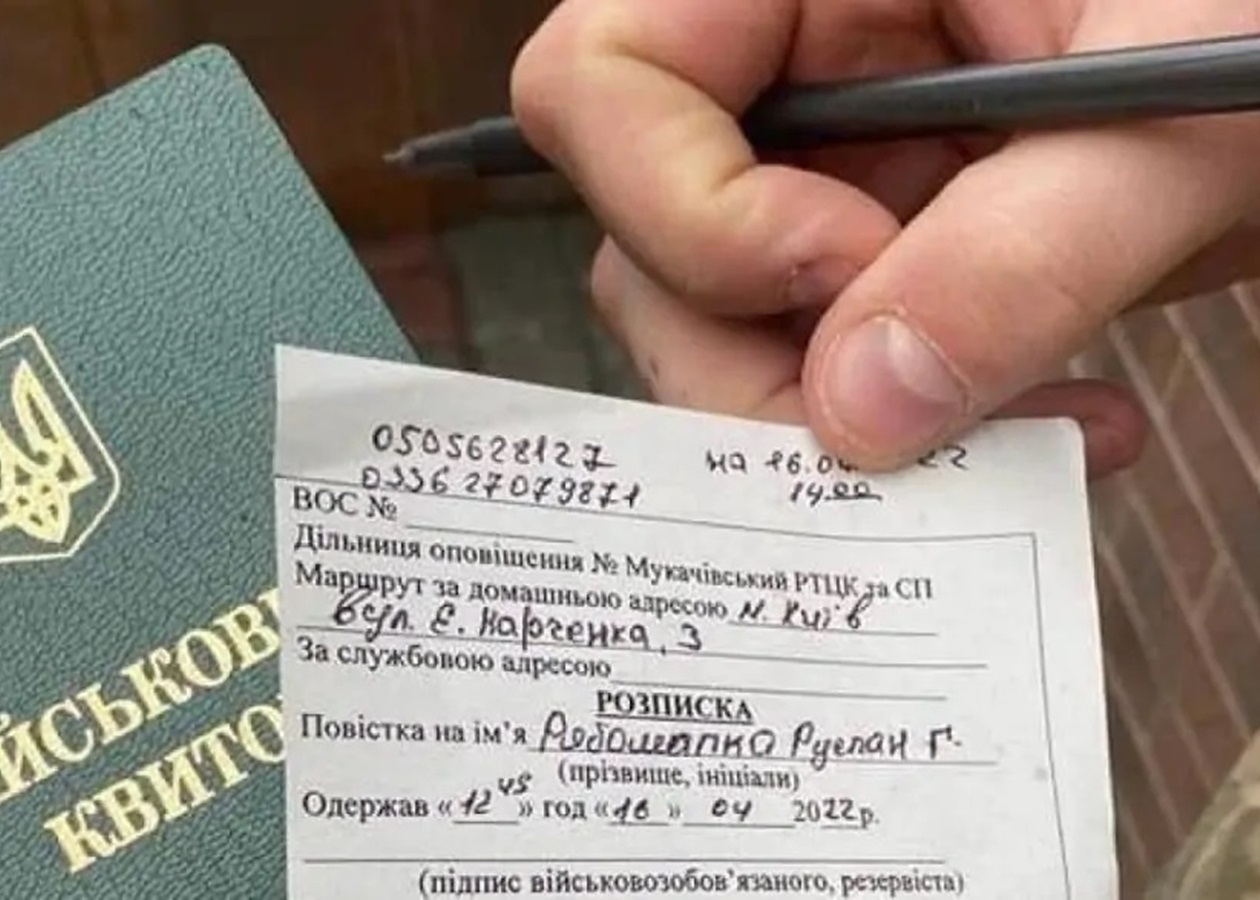 ЙСЬКОВИ
КВИТО
0505628127 на 16.04 22
0336 27079871 14.00
ВОС №
Дільниця оповіщення № Мукачівський РТЦК та СП
Маршрут за домашньою адресою м. Київ
вул. Є. Харченка, 3
За службовою адресою
РОЗПИСКА
Повістка на ім’я Рябошапка Руслан Г.
(прізвище, ініціали)
Одержав «12 45» год «16» 04 2022р.
(підпис військовозобов’язаного, резервіста)